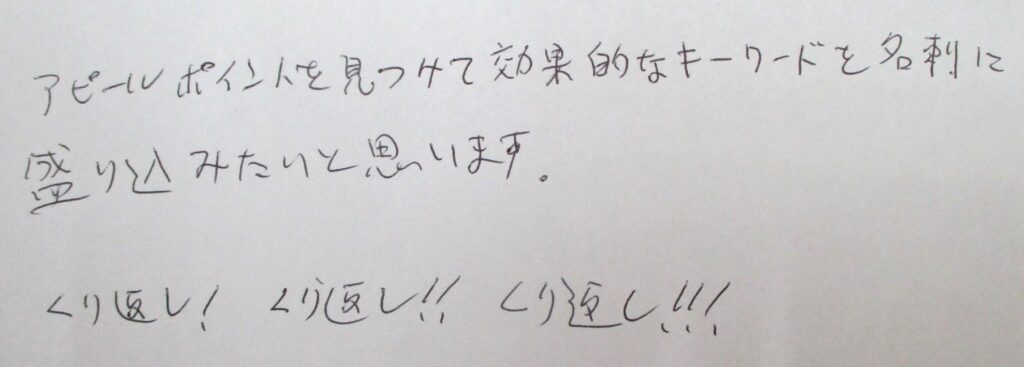 アピールポイントを見つけて効果的なキーワードを名刺に
盛り込みたいと思います。
くり返し! くり返し!! くり返し!!!